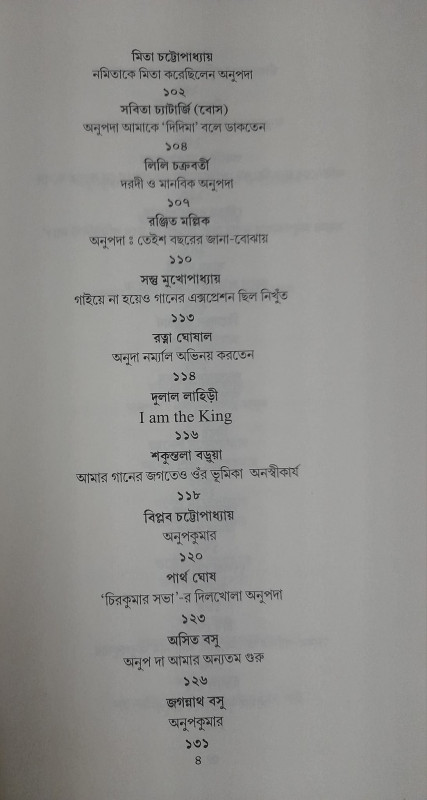 মিতা চট্টোপাধ্যায়
নমিতাকে মিতা করেছিলেন অনুপদা
১০২
সবিতা চ্যাটার্জি (বোস)
অনুপদা আমাকে ‘দিদিমা’ বলে ডাকতেন
১০৪
লিলি চক্রবর্তী
দরদী ও মানবিক অনুপদা
১০৭
রঞ্জিত মল্লিক
অনুপদা : তেইশ বছরের জানা-বোঝায়
১১০
সন্তু মুখোপাধ্যায়
গাইয়ে না হয়েও গানের এক্সপ্রেশন ছিল নিখুঁত
১১৩
রত্না ঘোষাল
অনুদা নর্ম্যাল অভিনয় করতেন
১১৪
দুলাল লাহিড়ী
I am the King
১১৬
শকুন্তলা বড়ুয়া
আমার গানের জগতেও ওঁর ভূমিকা অনস্বীকার্য
১১৮
বিপ্লব চট্টোপাধ্যায়
অনুপকুমার
১২০
পার্থ ঘোষ
‘চিরকুমার সভা’-র দিলখোলা অনুপদা
১২৩
অসিত বসু
অনুপ দা আমার অন্যতম গুরু
১২৬
জগন্নাথ বসু
অনুপকুমার
১৩১
৪